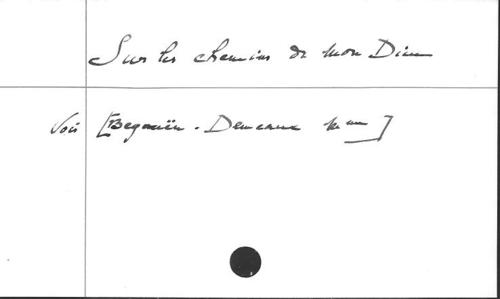 Sur les chemins de mon Dieu
Voir [Begouën-Demeaux Mme]